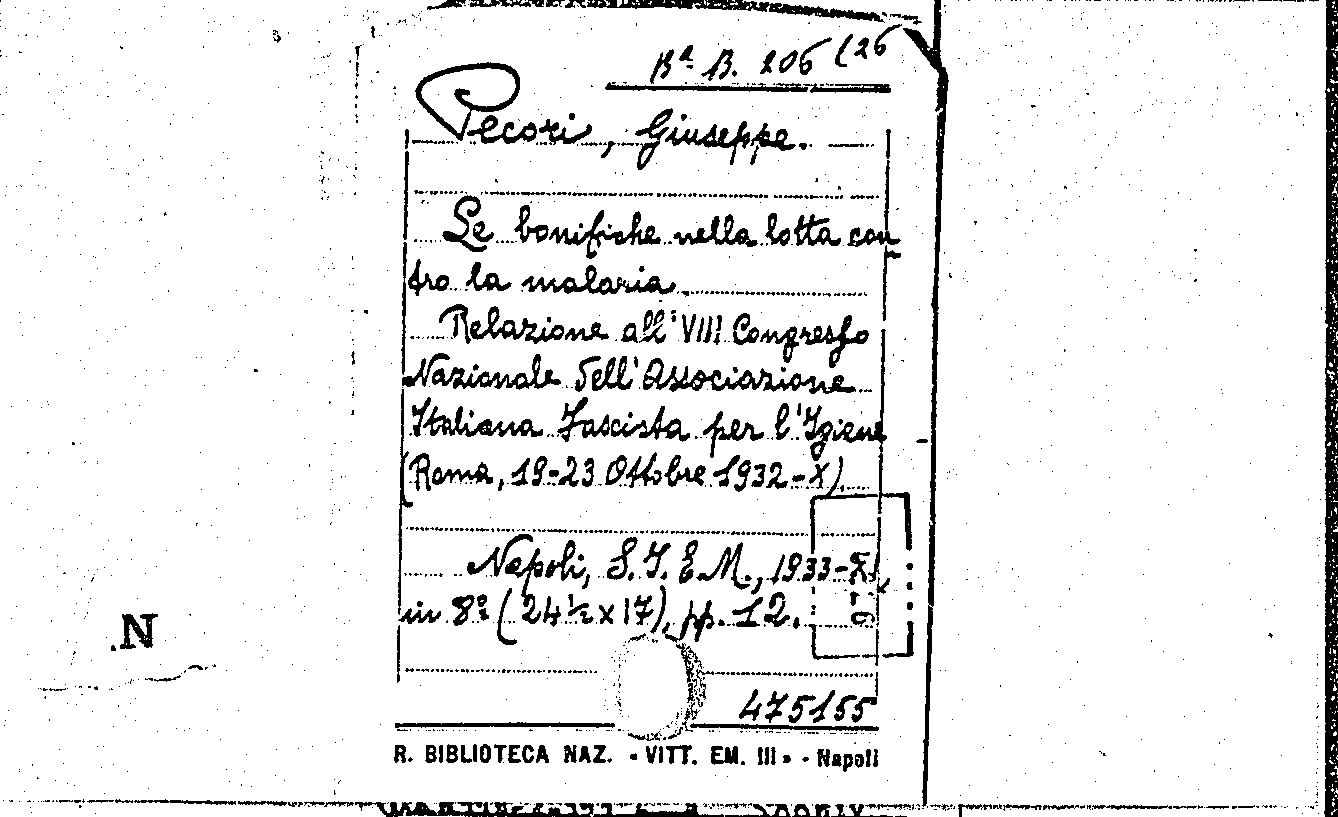 Bª B. 206 (26
Pecori, Giuseppe.
Le bonifiche nella lotta con-
tro la malaria.
Relazione all'VIII Congresso
Nazionale dell'Associazione
Italiana Fascista per l'Igiene
(Roma, 19-23 Ottobre 1932-X).
Napoli, S.I.E.M., 1933-XI,
in 8º (24½x17), pp. 12.
475155
R. BIBLIOTECA NAZ. « VITT. EM. III » - Napoli
.N